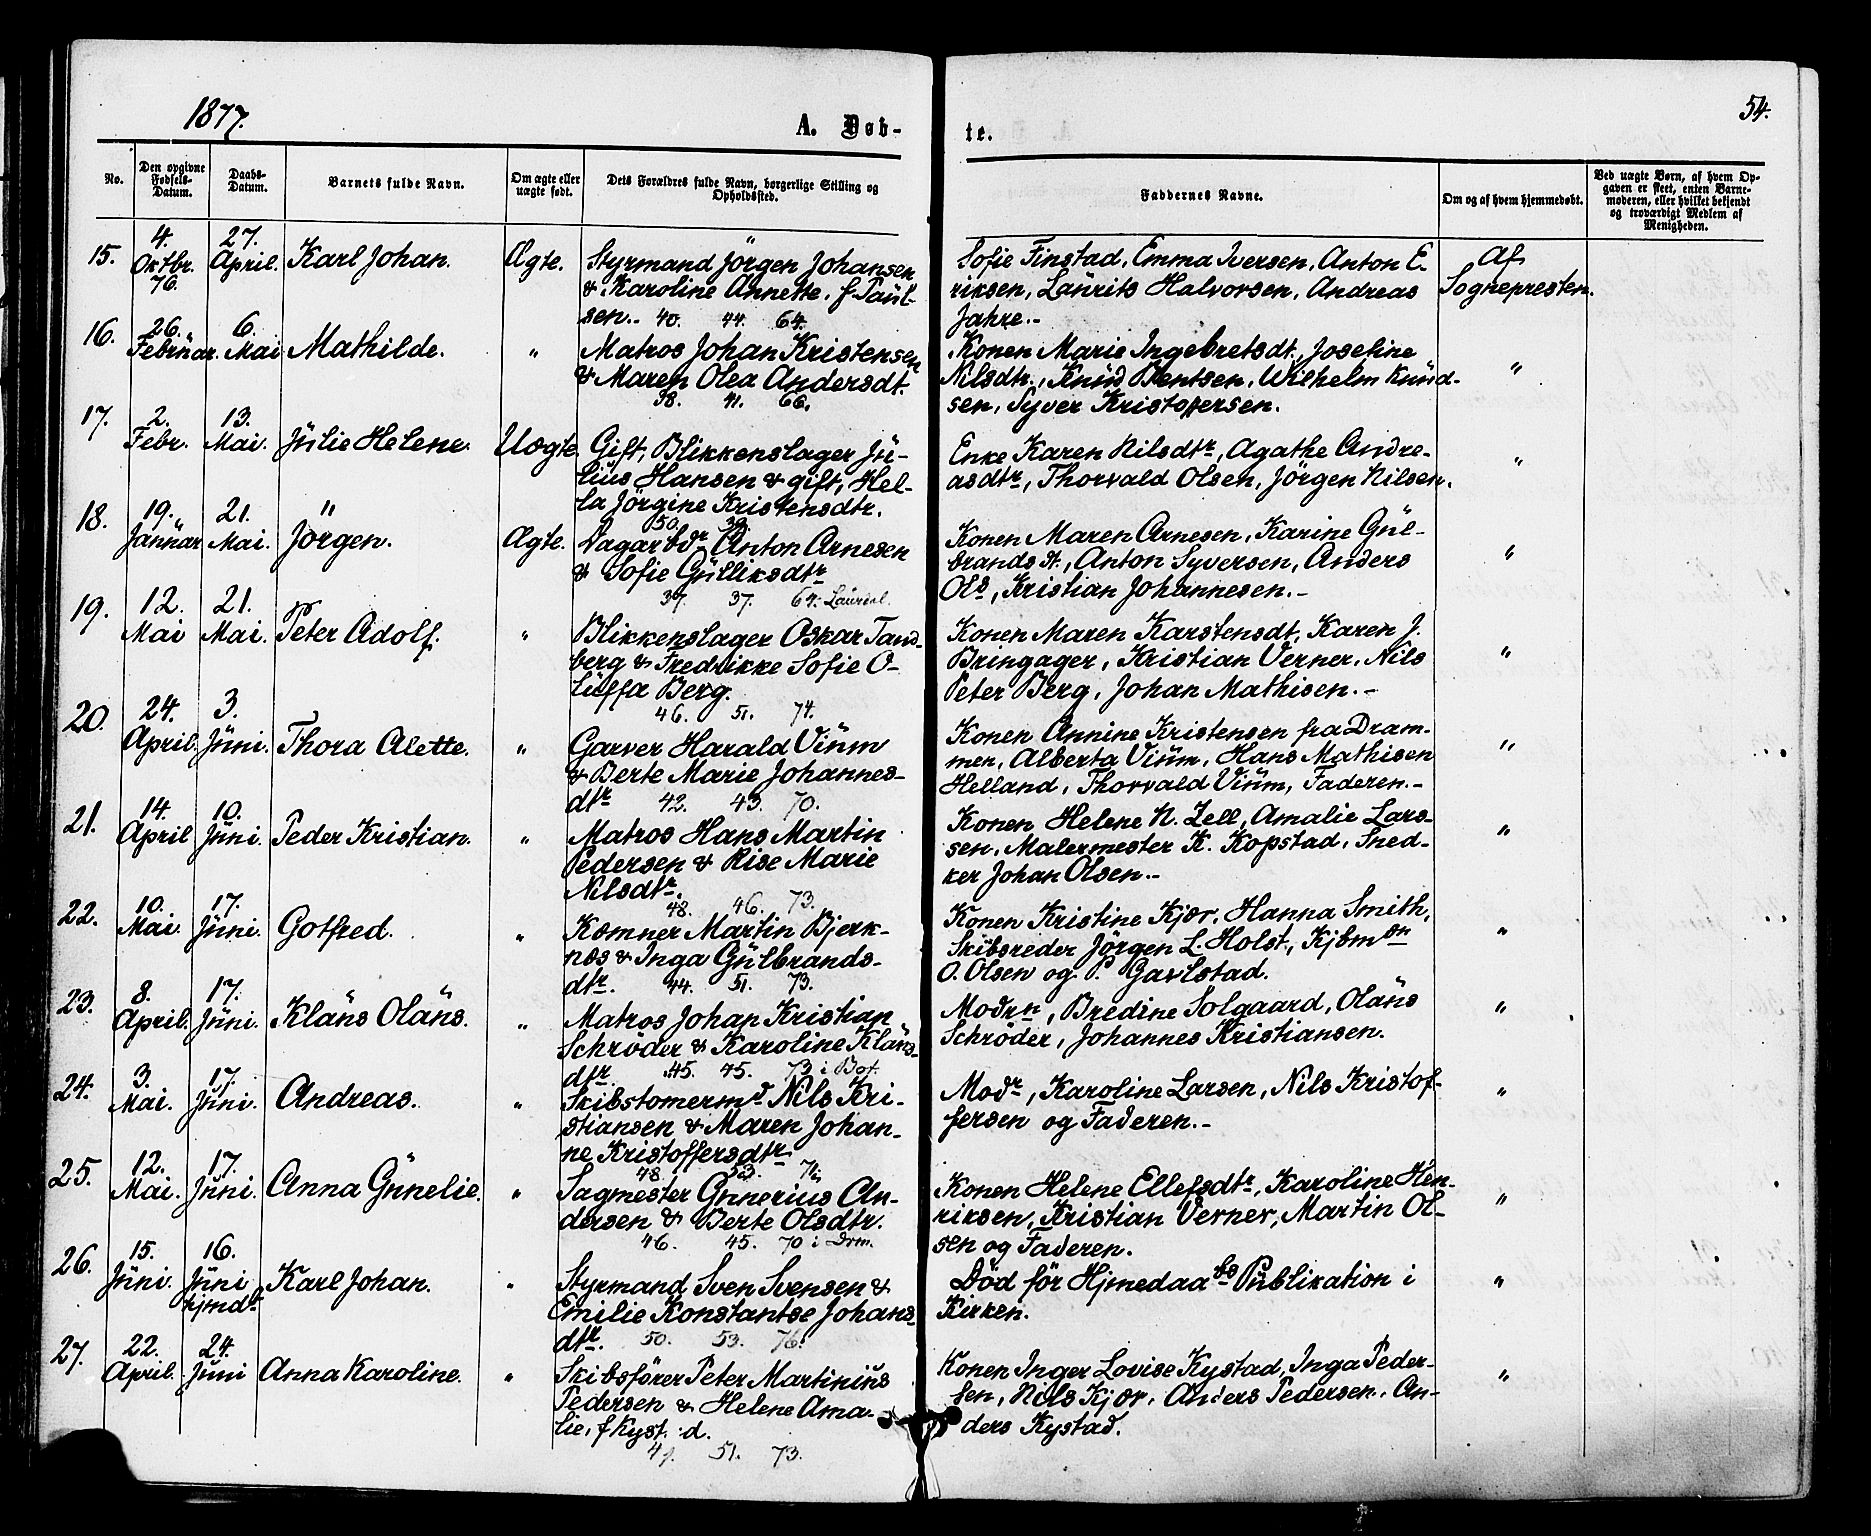 1877.
54.
A. Døb-
te.
No.
Den opgivne Fødsels-Datum.
Daabs-Datum.
Barnets fulde Navn.
Om ægte eller uægte født.
Dets Forældres fulde Navn, borgerlige Stilling og Opholdssted.
Faddernes Navne.
Om og af hvem hjemmedøbt.
Ved uægte Børn, af hvem Op-
gaven er skeet, enten Barne-
moderen, eller hvilket bekjendt
og troværdigt Medlem af
Menigheden.
15.
4.
Oktbr.
76.
27.
April.
Karl Johan.
Ægte.
Styrmand Jörgen Johansen
& Karoline Annette, f. Paul-
sen.. 40. 44. 64.
Sofie Finstad, Emma Iversen, Anton E-
riksen, Laurits Halvorsen, Andreas
Jahre.-
Af
Sognepresten.
16.
26.
Februar.
6.
Mai
Mathilde.
"
Matros Johan Kristensen
& Maren Olea Andersdt.
38. 41. 66.
Konen Marie Ingebretsdt., Josefine
Nilsdtr., Knud Bentsen, Wilhelm Knud-
sen, Syver Kristoffersen.
"
17.
2.
Febr.
13.
Mai.
Julie Helene.
Uægte.
Gift, Blikkenslager Ju-
lius Hansen & gift, Hel-
la Jörgine Kristensdtr.
50. 39.
Enke Karen Nilsdtr, Agathe Andre-
asdtr, Thorvald Olsen, Jörgen Nilsen.
"
18.
19.
Januar
21.
Mai.
"
Jörgen.
Ægte.
Dagarbdr Anton Arnesen
& Sofie Gulliksdtr
37. 37. 64. Laurdal.
Konen Maren Arnesen, Karine Gul-
brandsdt., Anton Syversen, Anders
Ols, Kristian Johannesen.-
"
19.
12.
Mai
21.
Mai.
Peter Adolf.
"
Blikkenslager Oskar Tand-
berg & Fredrikke Sofie O-
luffa Berg.
46. 51. 74.
Konen Maren Karstensdt, Karen J.
Bringager, Kristian Verner, Nils
Peter Berg, Johan Mathisen.-
"
20.
24.
April.
3.
Juni.
Thora Alette.
"
Garver Harald Vium
& Berte Marie Johannes-
dtr 42. 43. 70.
Konen Annine Kristensen fra Dram-
men, Alberta Vium, Hans Mathisen
Helland, Thorvald Vium, Faderen.-
"
21.
14.
April
10.
Juni.
Peder Kristian.
"
Matros Hans Martin
Pedersen & Rise Marie
Nilsdtr.
48. 46. 73.
Konen Helene N. Zell, Amalie Lars-
sen, Malermester K. Kopstad, Sned-
ker Johan Olsen.-
"
22.
10.
Mai.
17.
Juni.
Gotfred.
"
Kæmner Martin Bjerk-
næs & Inga Gulbrands-
dtr. 44. 51. 73.
Konen Kristine Kjær, Hanna Smith,
Skibsreder Jörgen L. Holst, Kjbmdn
O. Olsen og P. Gavlstad.
"
23.
8.
April.
17.
Juni.
Klaus Olaus.
"
Matros Johan Kristian
Schröder & Karoline Klaus-
dtr. 45. 45. 73 i Bot.
Modrn, Bredine Solgaard, Olaus
Schröder, Johannes Kristiansen.
"
24.
3.
Mai.
17.
Juni.
Andreas.
"
Skibstømermd Nils Kri-
stiansen & Maren Johan-
ne Kristoffersdtr.
48 53. 71.
Modr, Karoline Larsen, Nils Kristof-
fersen og Faderen.-
"
25.
12.
Mai.
17.
Juni.
Anna Gunelie.
"
Sagmester Gunerius An-
dersen & Berte Olsdtr.
46. 45. 70 i Drm.
Konen Helene Ellefsdtr, Karoline Hen-
riksen, Kristian Verner, Martin Ol-
sen og Faderen.
"
26.
15.
Juni.
16.
Juni
hjmdt
Karl Johan.
"
Styrmand Sven Svensen &
Emilie Konstantse Johans-
dtr. 50. 53. 76.
Död för Hjmedaabs Publikation i
Kirken.
"
27.
22.
April.
24.
Juni
Anna Karoline.
"
Skibsförer Peter Martinius
Pedersen & Helene Ama-
lie, f Kyst d.
51. 73.
Konen Inger Lovise Kystad, Inga Peder-
sen, Nils Kjær, Anders Pedersen, An-
ders Kystad.
"